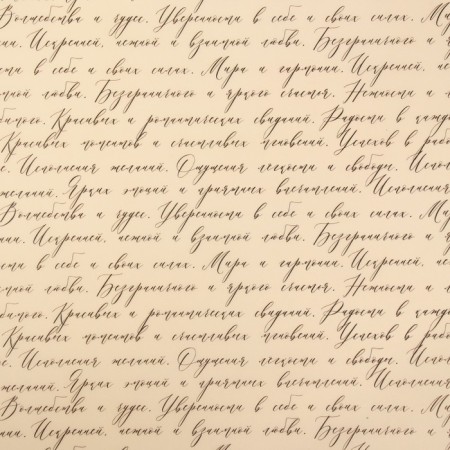 Волшебства и чудес. Уверенности в себе и своих силах. Ми
нии. Искренней, нежной и взаимной любви. Безграничного и я
сти в себе и своих силах. Мира и гармонии. Искренней, не
мной любви. Безграничного и яркого счастья. Нежности и л
бимого. Красивых и романтических свиданий. Радости в каждо
Красивых моментов и счастливых мгновений. Успехов в рабо
е. Исполнения желаний. Ощущения легкости и свободы. Испо
желаний. Ярких эмоций и приятных впечатлений. Исполнения
Волшебства и чудес. Уверенности в себе и своих силах. Ми
нии. Искренней, нежной и взаимной любви. Безграничного и я
сти в себе и своих силах. Мира и гармонии. Искренней, не
мной любви. Безграничного и яркого счастья. Нежности и л
бимого. Красивых и романтических свиданий. Радости в каждо
Красивых моментов и счастливых мгновений. Успехов в рабо
е. Исполнения желаний. Ощущения легкости и свободы. Испол
желаний. Ярких эмоций и приятных впечатлений. Исполнения
Волшебства и чудес. Уверенности в себе и своих силах. Ми
нии. Искренней, нежной и взаимной любви. Безграничного и я